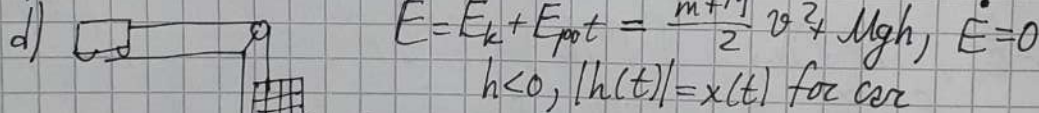 d) E = E_k + E_pot = (m+M)/2 v² + Mgh, Ė = 0
h<0, |h(t)| = x(t) for car